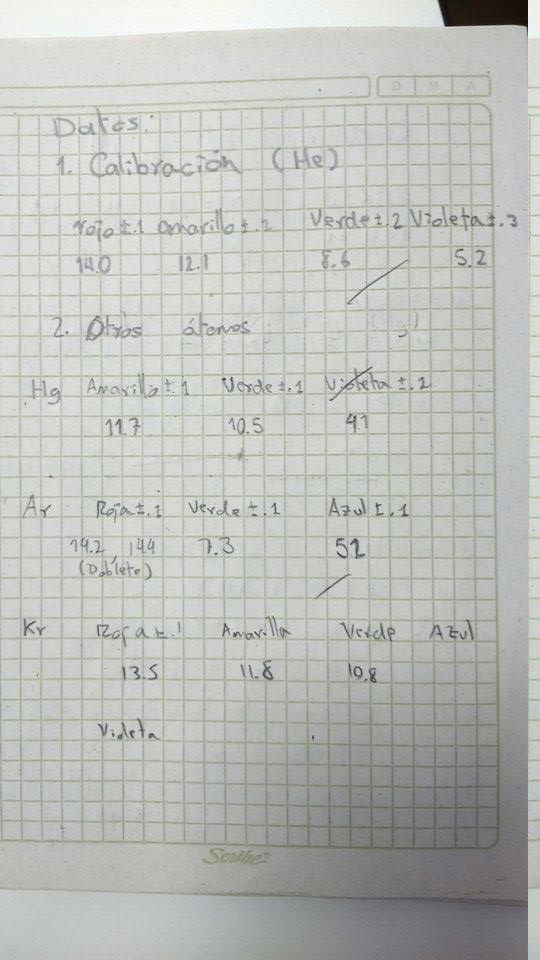 D M A
Datos:
1. Calibración (He)
rojo ±.1 amarillo ±.2 Verde ±.2 Violeta ±.3
14.0 12.1 8.6 5.2
2. Otros átomos
Hg Amarillo ±.1 Verde ±.1 Violeta ±.2
11.7 10.5 4.1
Ar Roja ±.1 Verde ±.1 Azul ±.1
14.2, 14.4 7.3 52
(Doblete)
Kr Roja ±.1 Amarilla Verde Azul
13.5 11.8 10.8
Violeta
Scribe